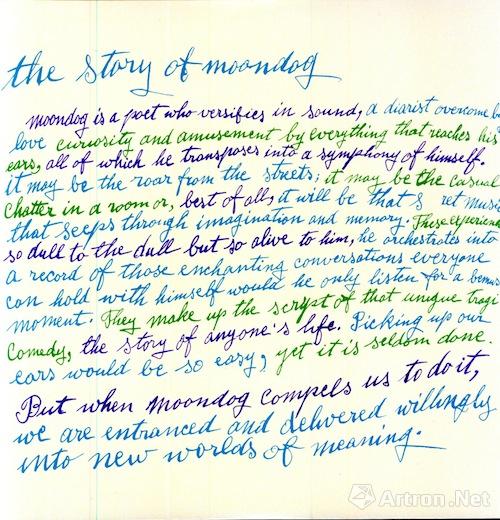 the story of moondog
moondog is a poet who versifies in sound, a diarist overcome b
love curiosity and amusement by everything that reaches his
ears, all of which he transposes into a symphony of himself.
it may be the roar from the streets; it may be the casual
chatter in a room or, best of all, it will be that s ret music
that seeps through imagination and memory. These experienc
so dull to the dull but so alive to him, he orchestrates into
a record of those enchanting conversations everyone
can hold with himself would he only listen for a bemus
moment. They make up the script of that unique tragic
Comedy, the story of anyone's life. Picking up our
ears would be so easy, yet it is seldom done.
But when moondog compels us to do it,
we are entranced and delivered willingly
into new worlds of meaning.
Artron.Net